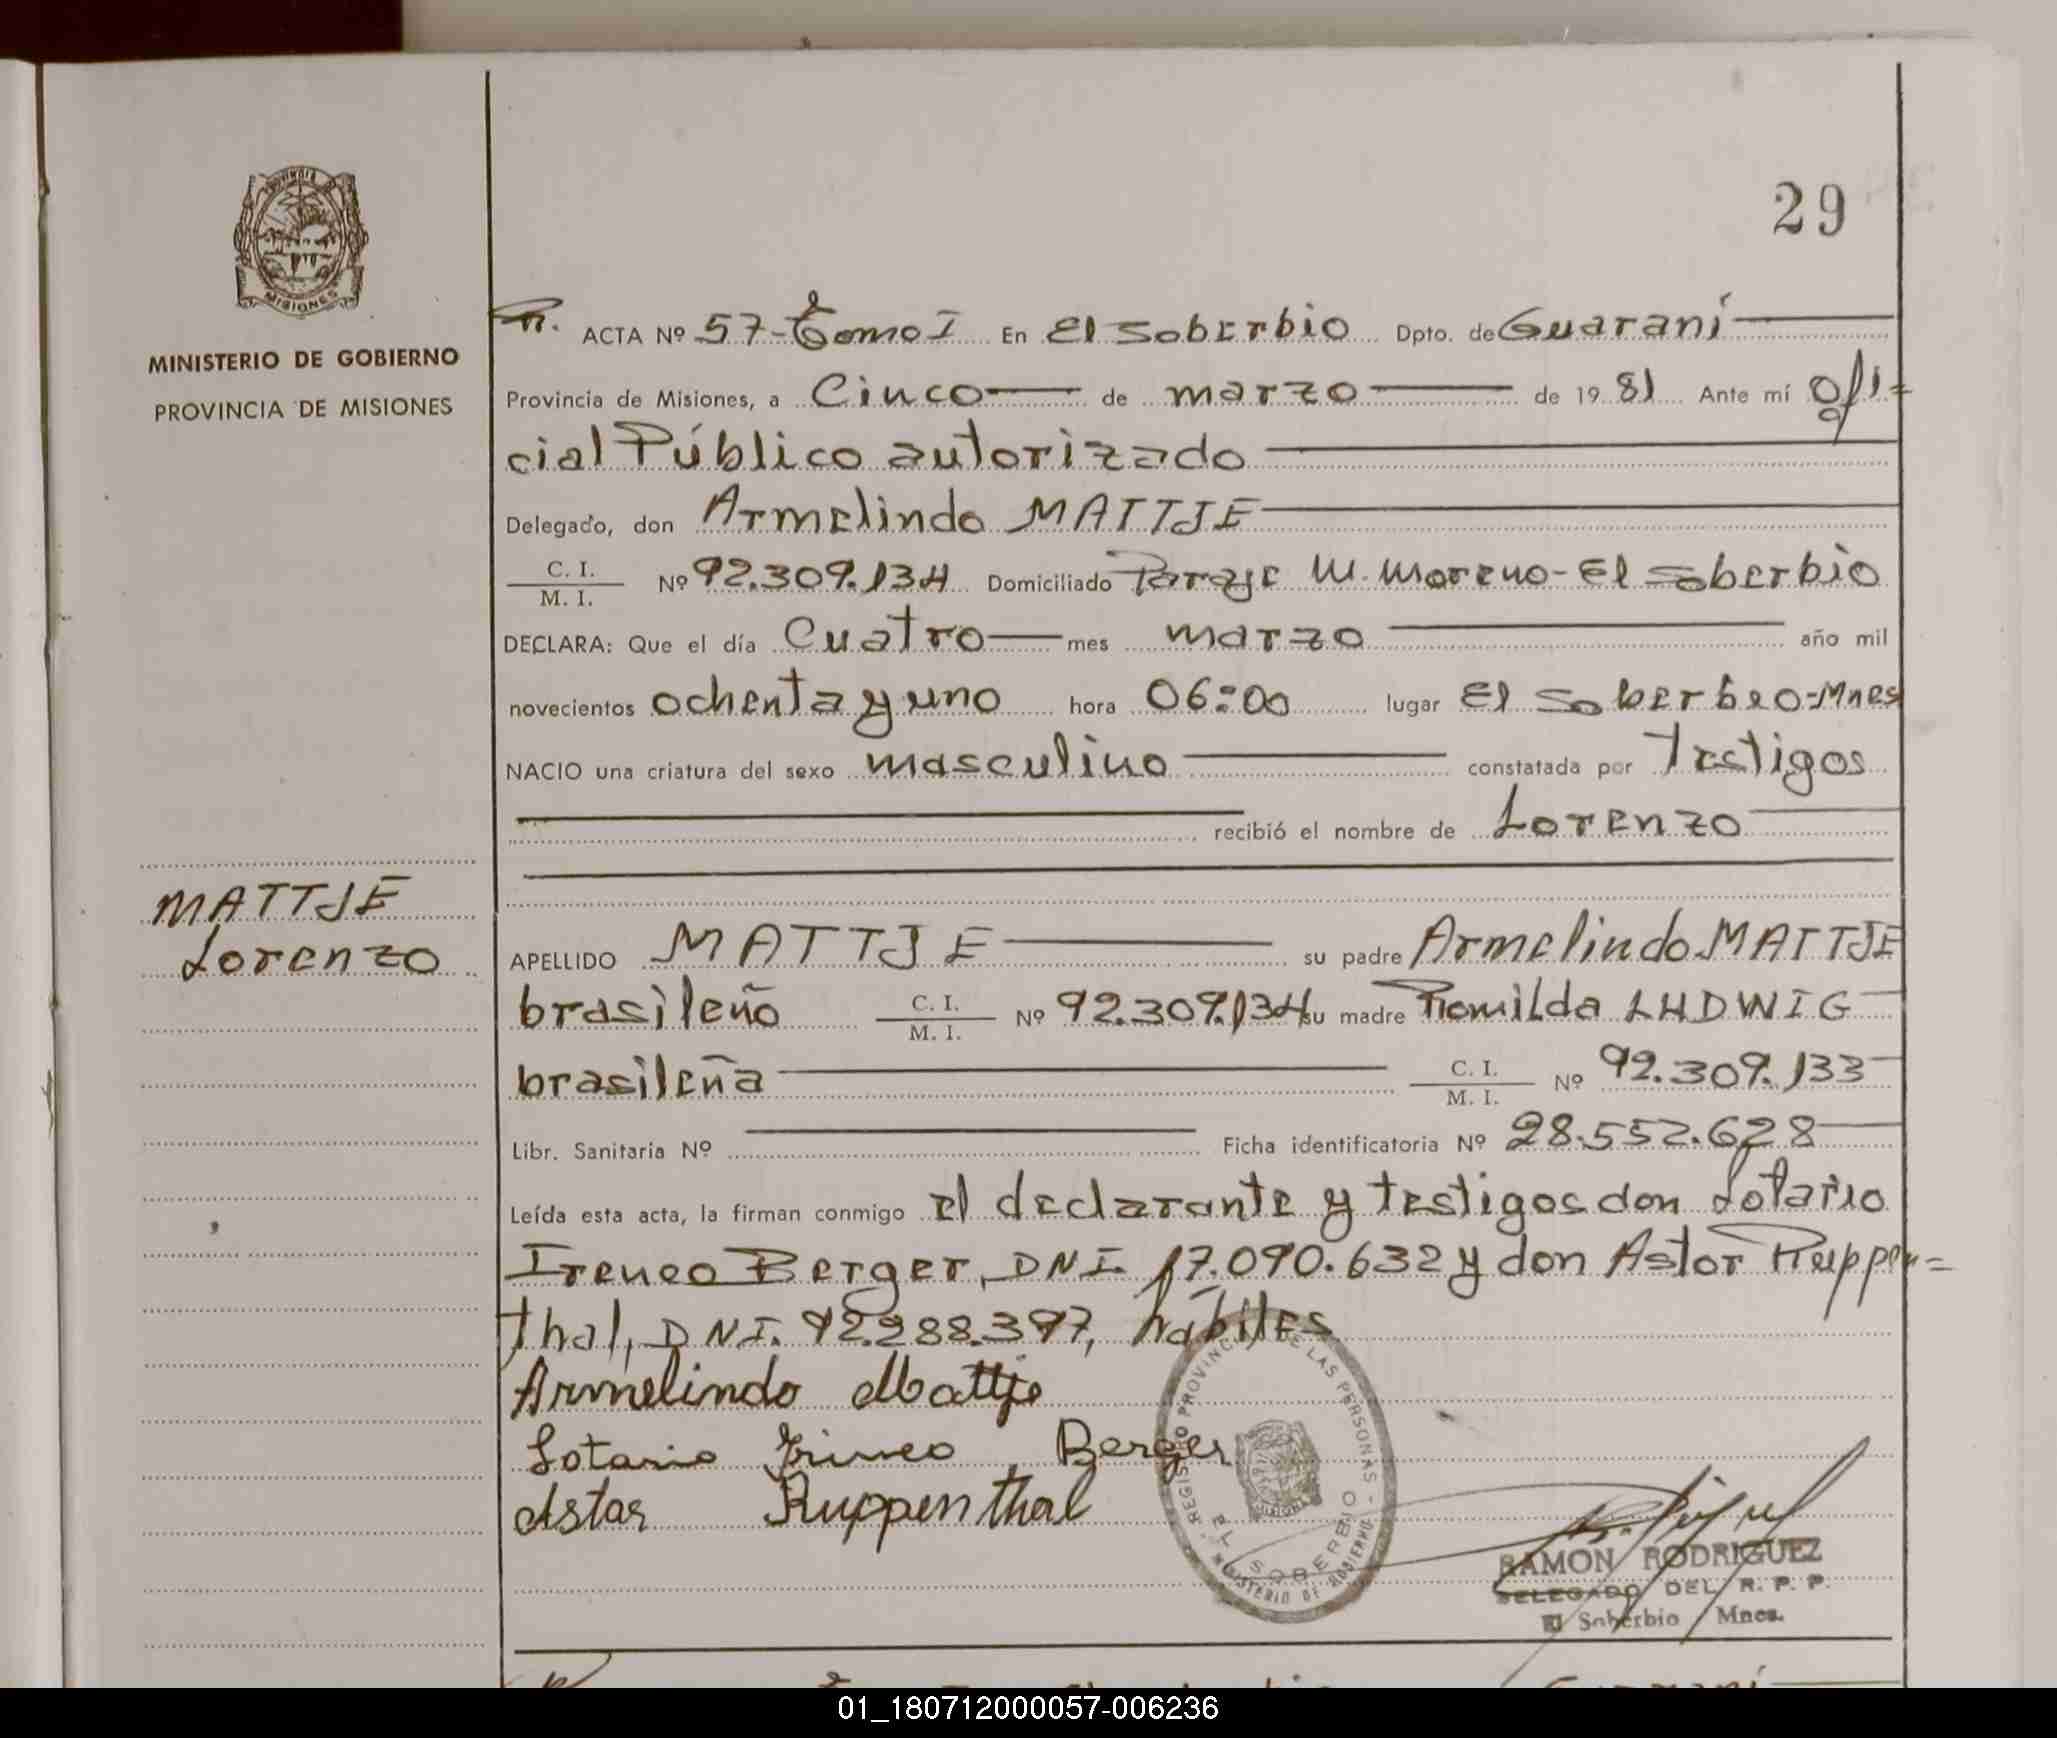 29
PROVINCIA DE
MISIONES
MINISTERIO DE GOBIERNO
PROVINCIA DE MISIONES
ACTA Nº 57-Tomo I En El Soberbio Dpto. de Guaraní
Provincia de Misiones, a Cinco de marzo de 1981 Ante mí Ofi=
cial Público autorizado
Delegado, don Armelindo MATTJE
C. I. / M. I. Nº 92.309.134 Domiciliado Paraje M. Moreno-El Soberbio
DECLARA: Que el día Cuatro mes marzo año mil
novecientos ochenta y uno hora 06:00 lugar El Soberbio-Mnes
NACIO una criatura del sexo masculino constatada por Testigos
recibió el nombre de Lorenzo
MATTJE
Lorenzo
APELLIDO MATTJE su padre Armelindo MATTJE
brasileño C. I. / M. I. Nº 92.309.134 su madre Romilda LUDWIG
brasileña C. I. / M. I. Nº 92.309.133
Libr. Sanitaria Nº Ficha identificatoria Nº 28.552.628
Leída esta acta, la firman conmigo el declarante y testigos don Lotario
Ireneo Berger, DNI. 17.090.632 y don Astor Ruppen=
thal, DNI. 92.288.397, hábiles
Armelindo Mattje
Lotario Irineo Berger
Astor Ruppenthal
REGISTRO PROVINCIAL DE LAS PERSONAS - MINISTERIO DE GOBIERNO -
EL SOBERBIO
MISIONES
RAMON RODRIGUEZ
DELEGADO DEL R. P. P.
El Soberbio Mnes.
01_180712000057-006236